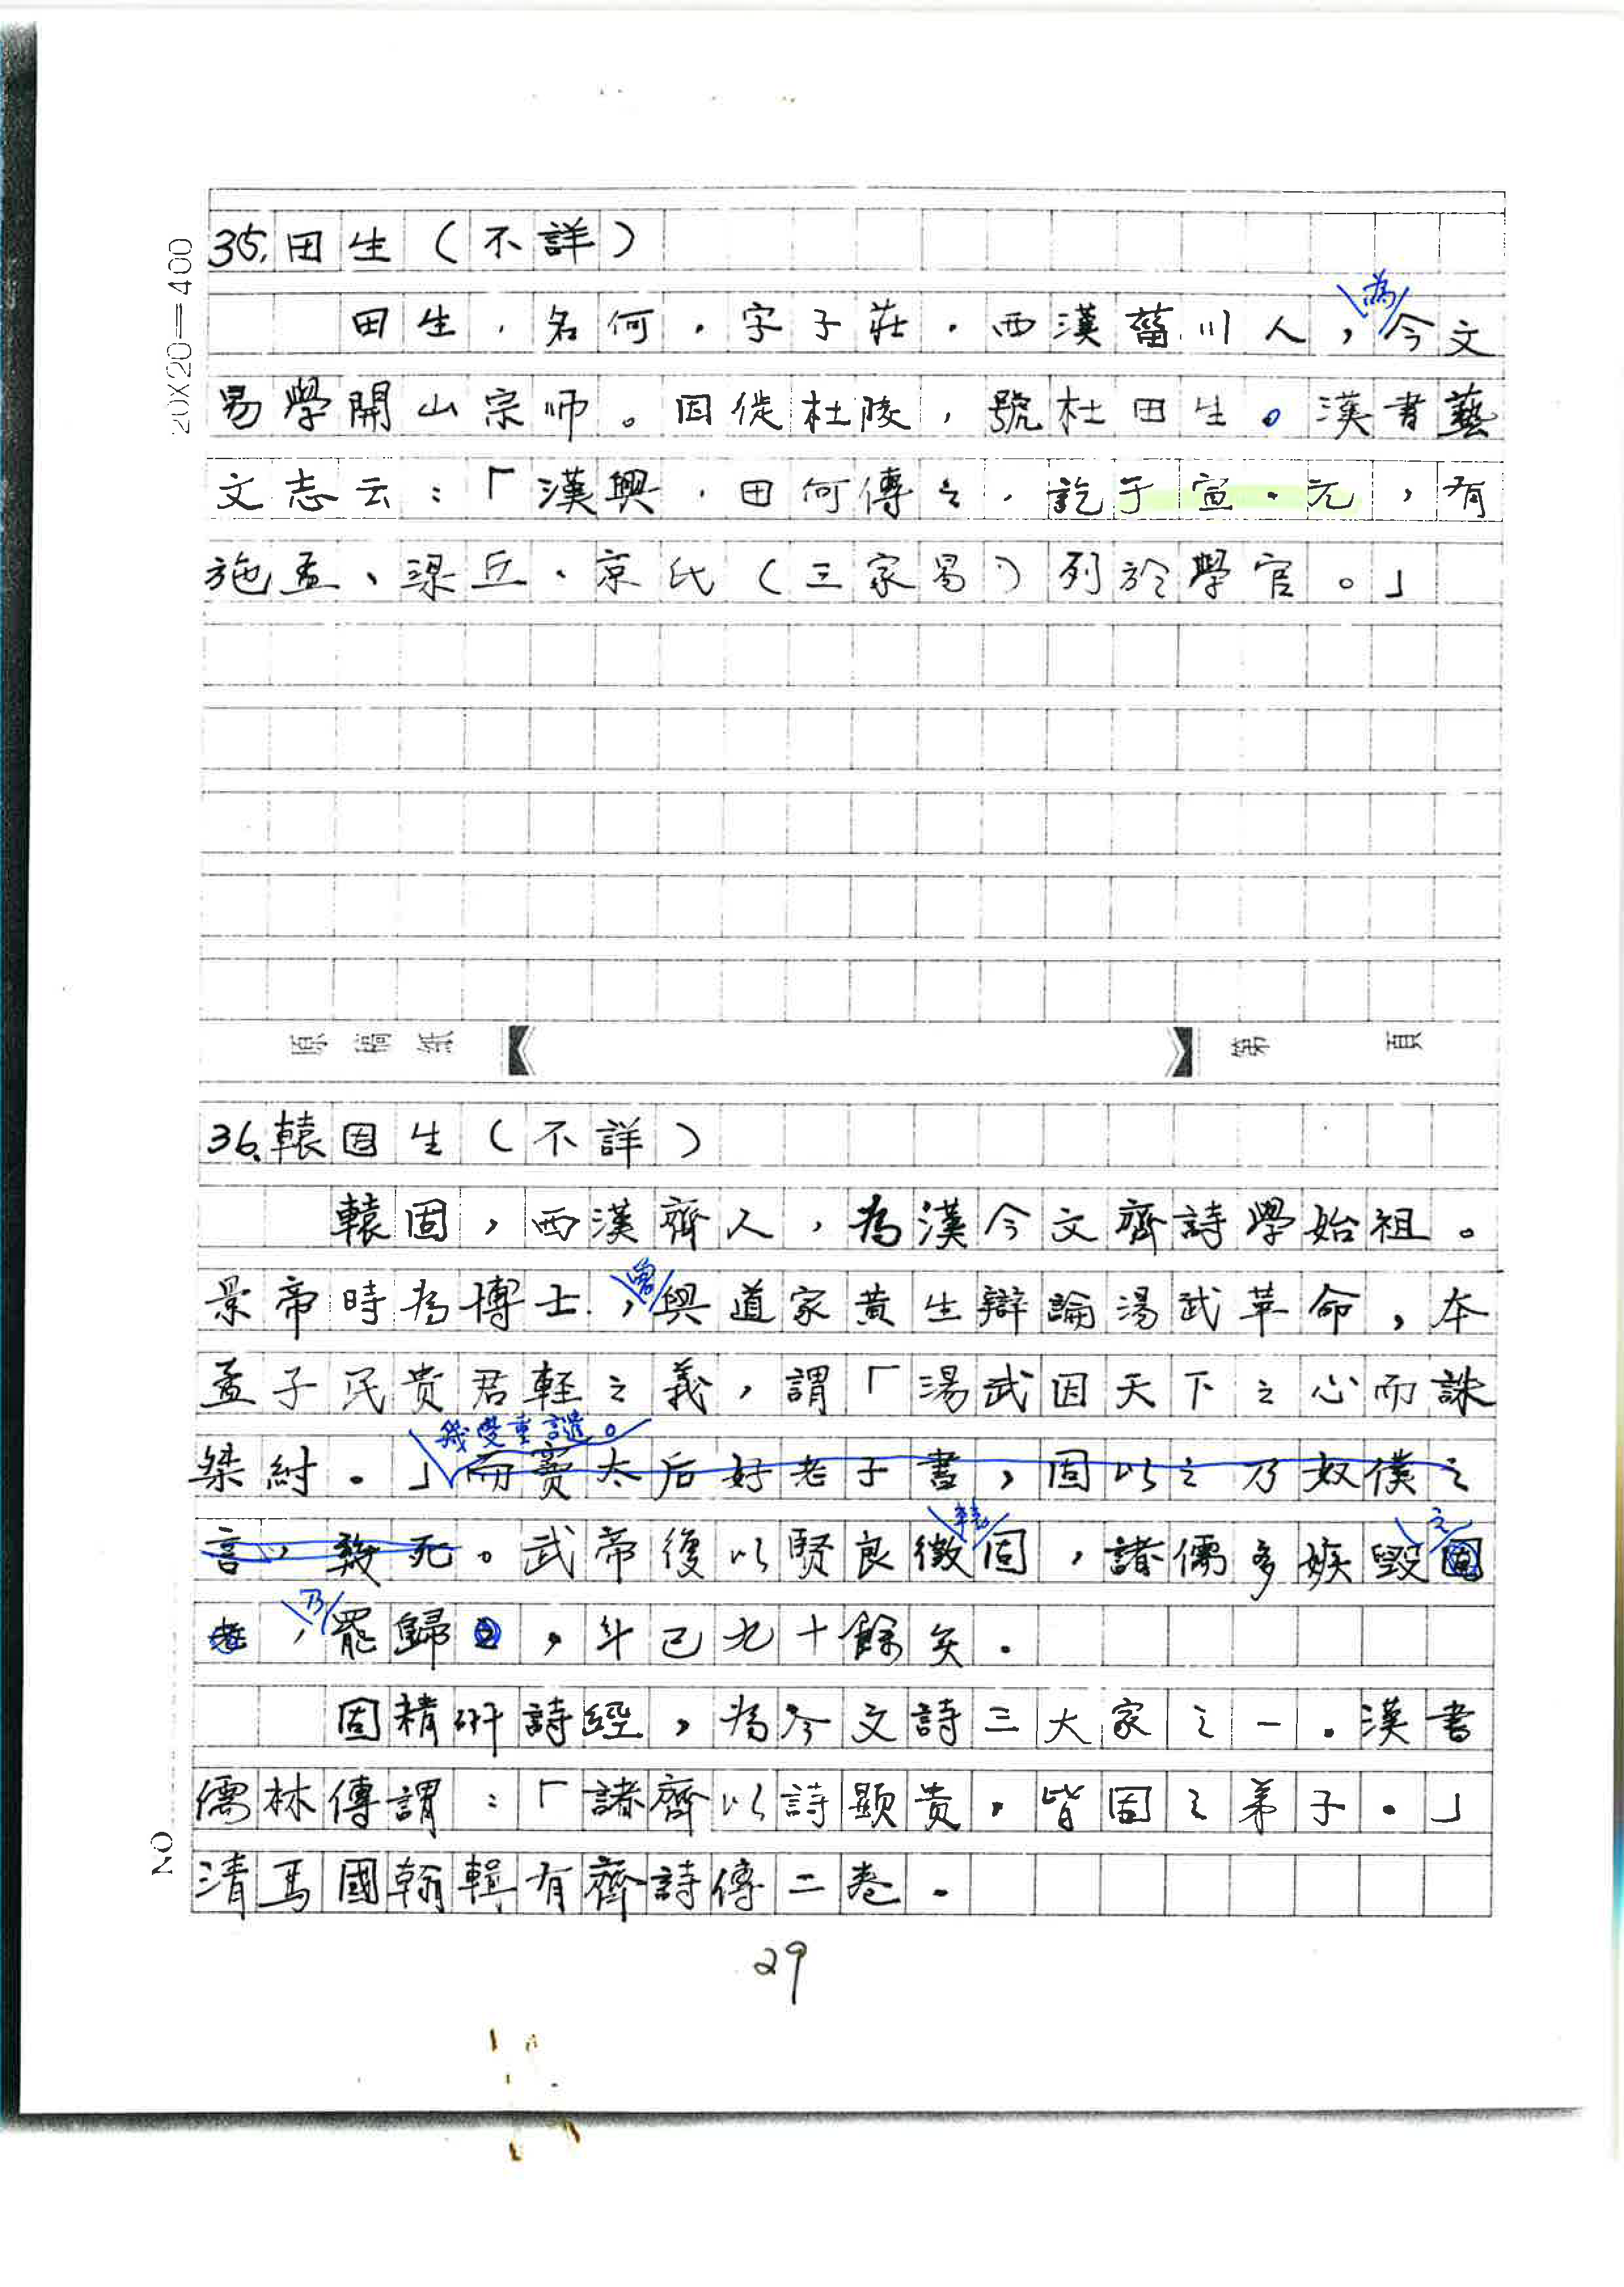 20X20=400
35.田生(不詳)
為
田生,名何,字子莊,西漢菑川人,今文
易學開山宗師。因徙杜陵,號杜田生。漢書藝
文志云:「漢興,田何傳之,訖于宣、元,有
施孟、梁丘、京氏(三家易)列於學官。」
原稿紙 第 頁
36.轅固生(不詳)
轅固,西漢齊人,為漢今文齊詩學始祖。
曾
景帝時為博士,與道家黃生辯論湯武革命,本
孟子民貴君輕之義,謂「湯武因天下之心而誅
幾受重譴。
桀紂。」而竇太后好老子書,固以之乃奴僕之
轅 之
言,幾死。武帝復以賢良徵固,諸儒多嫉毀固
乃
老,罷歸之,年已九十餘矣。
固精研詩經,為今文詩三大家之一。漢書
儒林傳謂:「諸齊以詩顯貴,皆固之弟子。」
清馬國翰輯有齊詩傳二卷。
NO
29